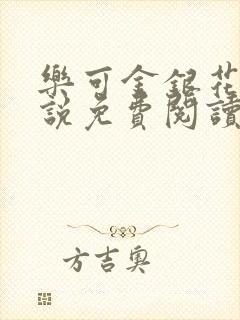 樂可金銀花
說免費閱讀
方吉奧